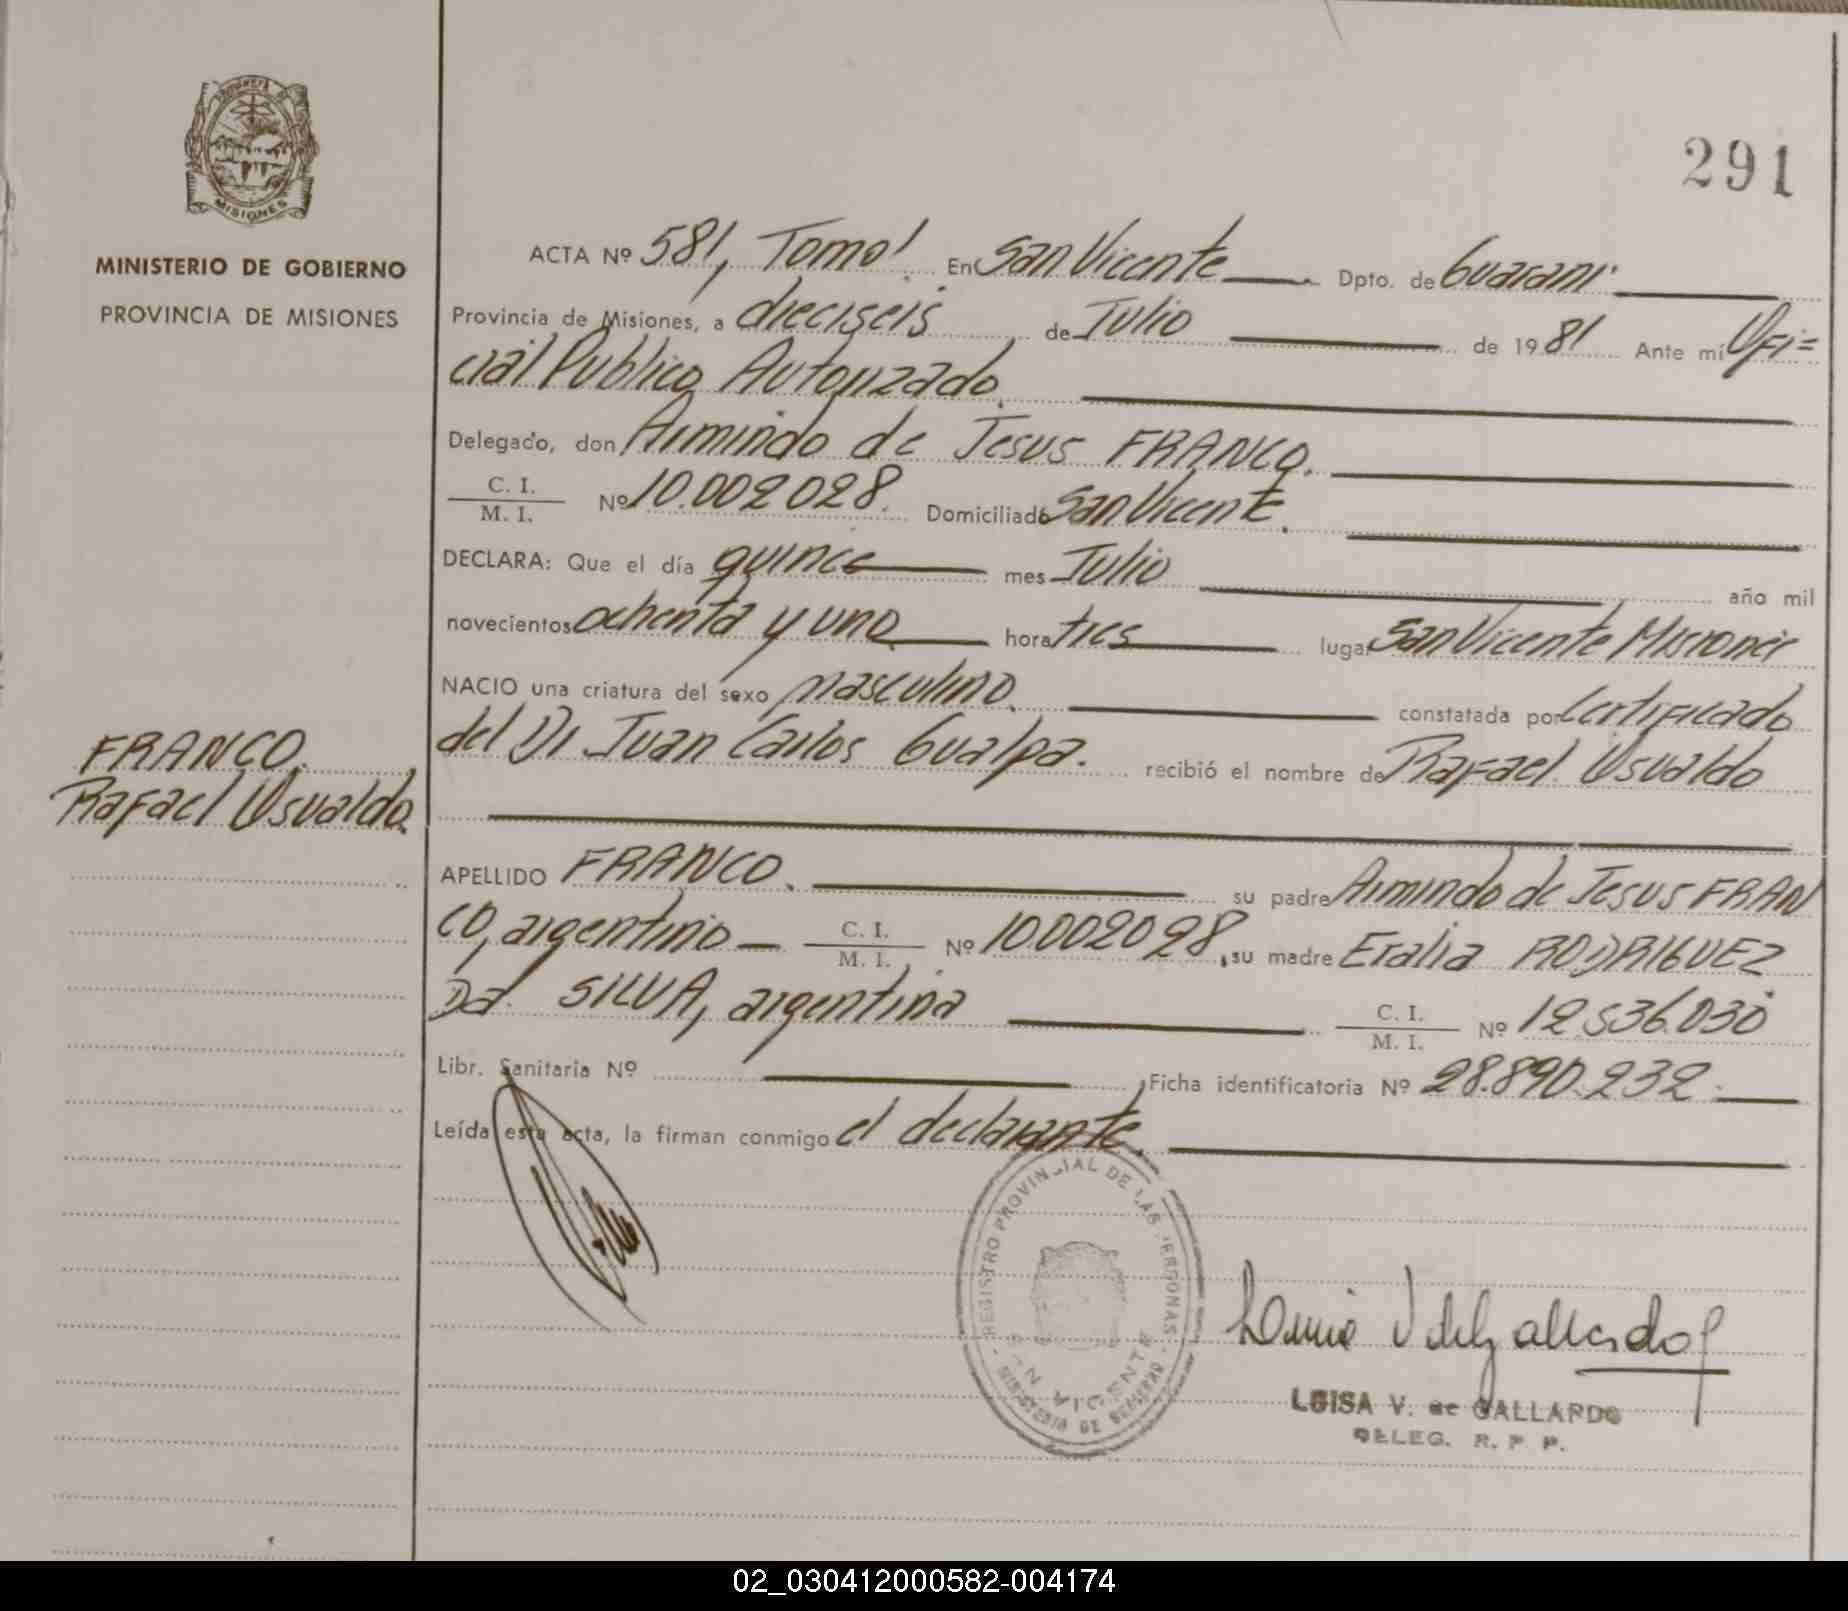 291
MISIONES
MINISTERIO DE GOBIERNO
PROVINCIA DE MISIONES
FRANCO.
Rafael Osvaldo.
ACTA Nº 581, Tomo I. En San Vicente Dpto. de Guaraní
Provincia de Misiones, a dieciseis de Julio de 1981 Ante mí Ofi=
cial Publico Autorizado.
Delegado, don Armindo de Jesus FRANCO.
C. I.
M. I. Nº 10.002028. Domiciliado San Vicente.
DECLARA: Que el día quince mes Julio año mil
novecientos ochenta y uno hora tres lugar San Vicente Misiones
NACIO una criatura del sexo masculino. constatada por Certificado
del Dr Juan Carlos Gualpa. recibió el nombre de Rafael Osvaldo
APELLIDO FRANCO. su padre Armindo de Jesus FRAN
CO, argentino C. I.
M. I. Nº 10.002028, su madre Eralia RODRIGUEZ
Da. SILVA, argentina C. I.
M. I. Nº 12.536.030
Libr. Sanitaria Nº Ficha identificatoria Nº 28.890.232.
Leída esta acta, la firman conmigo el declarante.
REGISTRO PROVINCIAL DE LAS PERSONAS
SAN VICENTE
MINISTERIO DE GOBIERNO
Luisa V de Gallardo
LUISA V. de GALLARDO
DELEG. R. P. P.
02_030412000582-004174